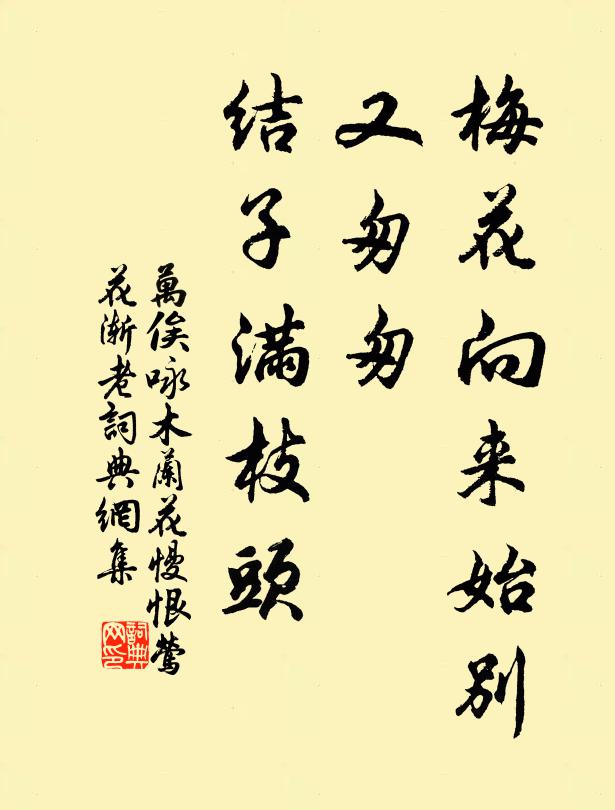 梅花向来始别
又匆匆
结子满枝頭
萬俟咏木蘭花慢恨鶯
花漸老詞典網集
詞典
网印